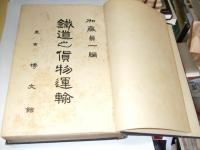 加藤 一編
鐵道之貨物運輸
東京 博文館